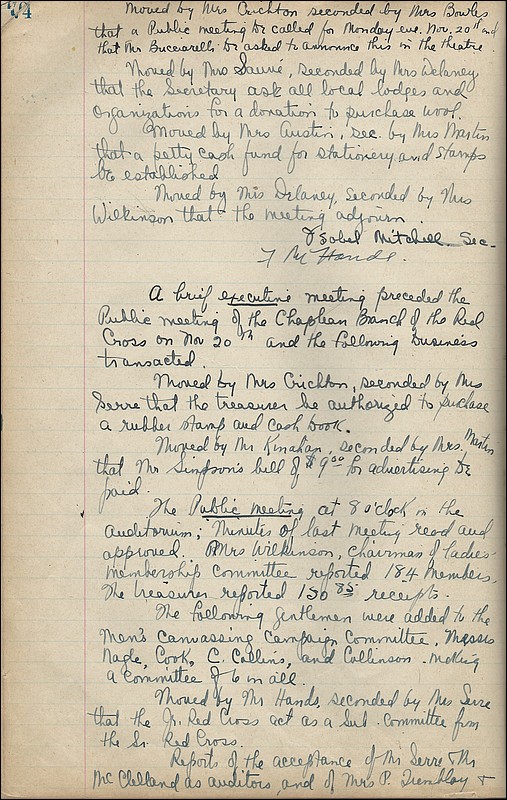 74
Moved by Mrs Crichton seconded by Mrs Bowles
that a Public meeting be called for Monday eve. Nov. 20th and
that Mr Buccarelli be asked to announce this in the theatre.
Moved by Mrs Sauvé, seconded by Mrs Delaney
that the Secretary ask all local lodges and
organizations for a donation to purchase wool.
Moved by Mrs Austin, sec. by Mrs Martin
that a petty cash fund for stationery and stamps
be established
Moved by Mrs Delaney, seconded by Mrs
Wilkinson that the meeting adjourn.
Ysobel Mitchell Sec-
F M Hands.
A brief executive meeting preceded the
Public meeting of the Chapleau Branch of the Red
Cross on Nov 20th and the following business
transacted.
Moved by Mrs Crichton, seconded by Mrs
Serre that the treasurer be authorized to purchase
a rubber stamp and cash book.
Moved by Mr Kinahan, seconded by Mrs. Martin
that Mr Simpson's bill of $9.00 for advertising be
paid.
The Public meeting at 8 o'clock in the
auditorium; Minutes of last meeting read and
approved. Mrs Wilkinson, Chairman of Ladies
membership committee reported 184 members.
The treasurer reported 150 85 receipts.
The following gentlemen were added to the
Men's canvassing campaign committee, Messrs
Nagle, Cook, C. Collins, and Collinson. making
a committee of 6 in all.
Moved by Mr Hands, seconded by Mrs Serre
that the Jr. Red Cross act as a Sub. committee from
the Sr. Red Cross.
Reports of the acceptance of Mr Serre & Mr
McClelland as auditors, and of Mrs P. Tremblay &